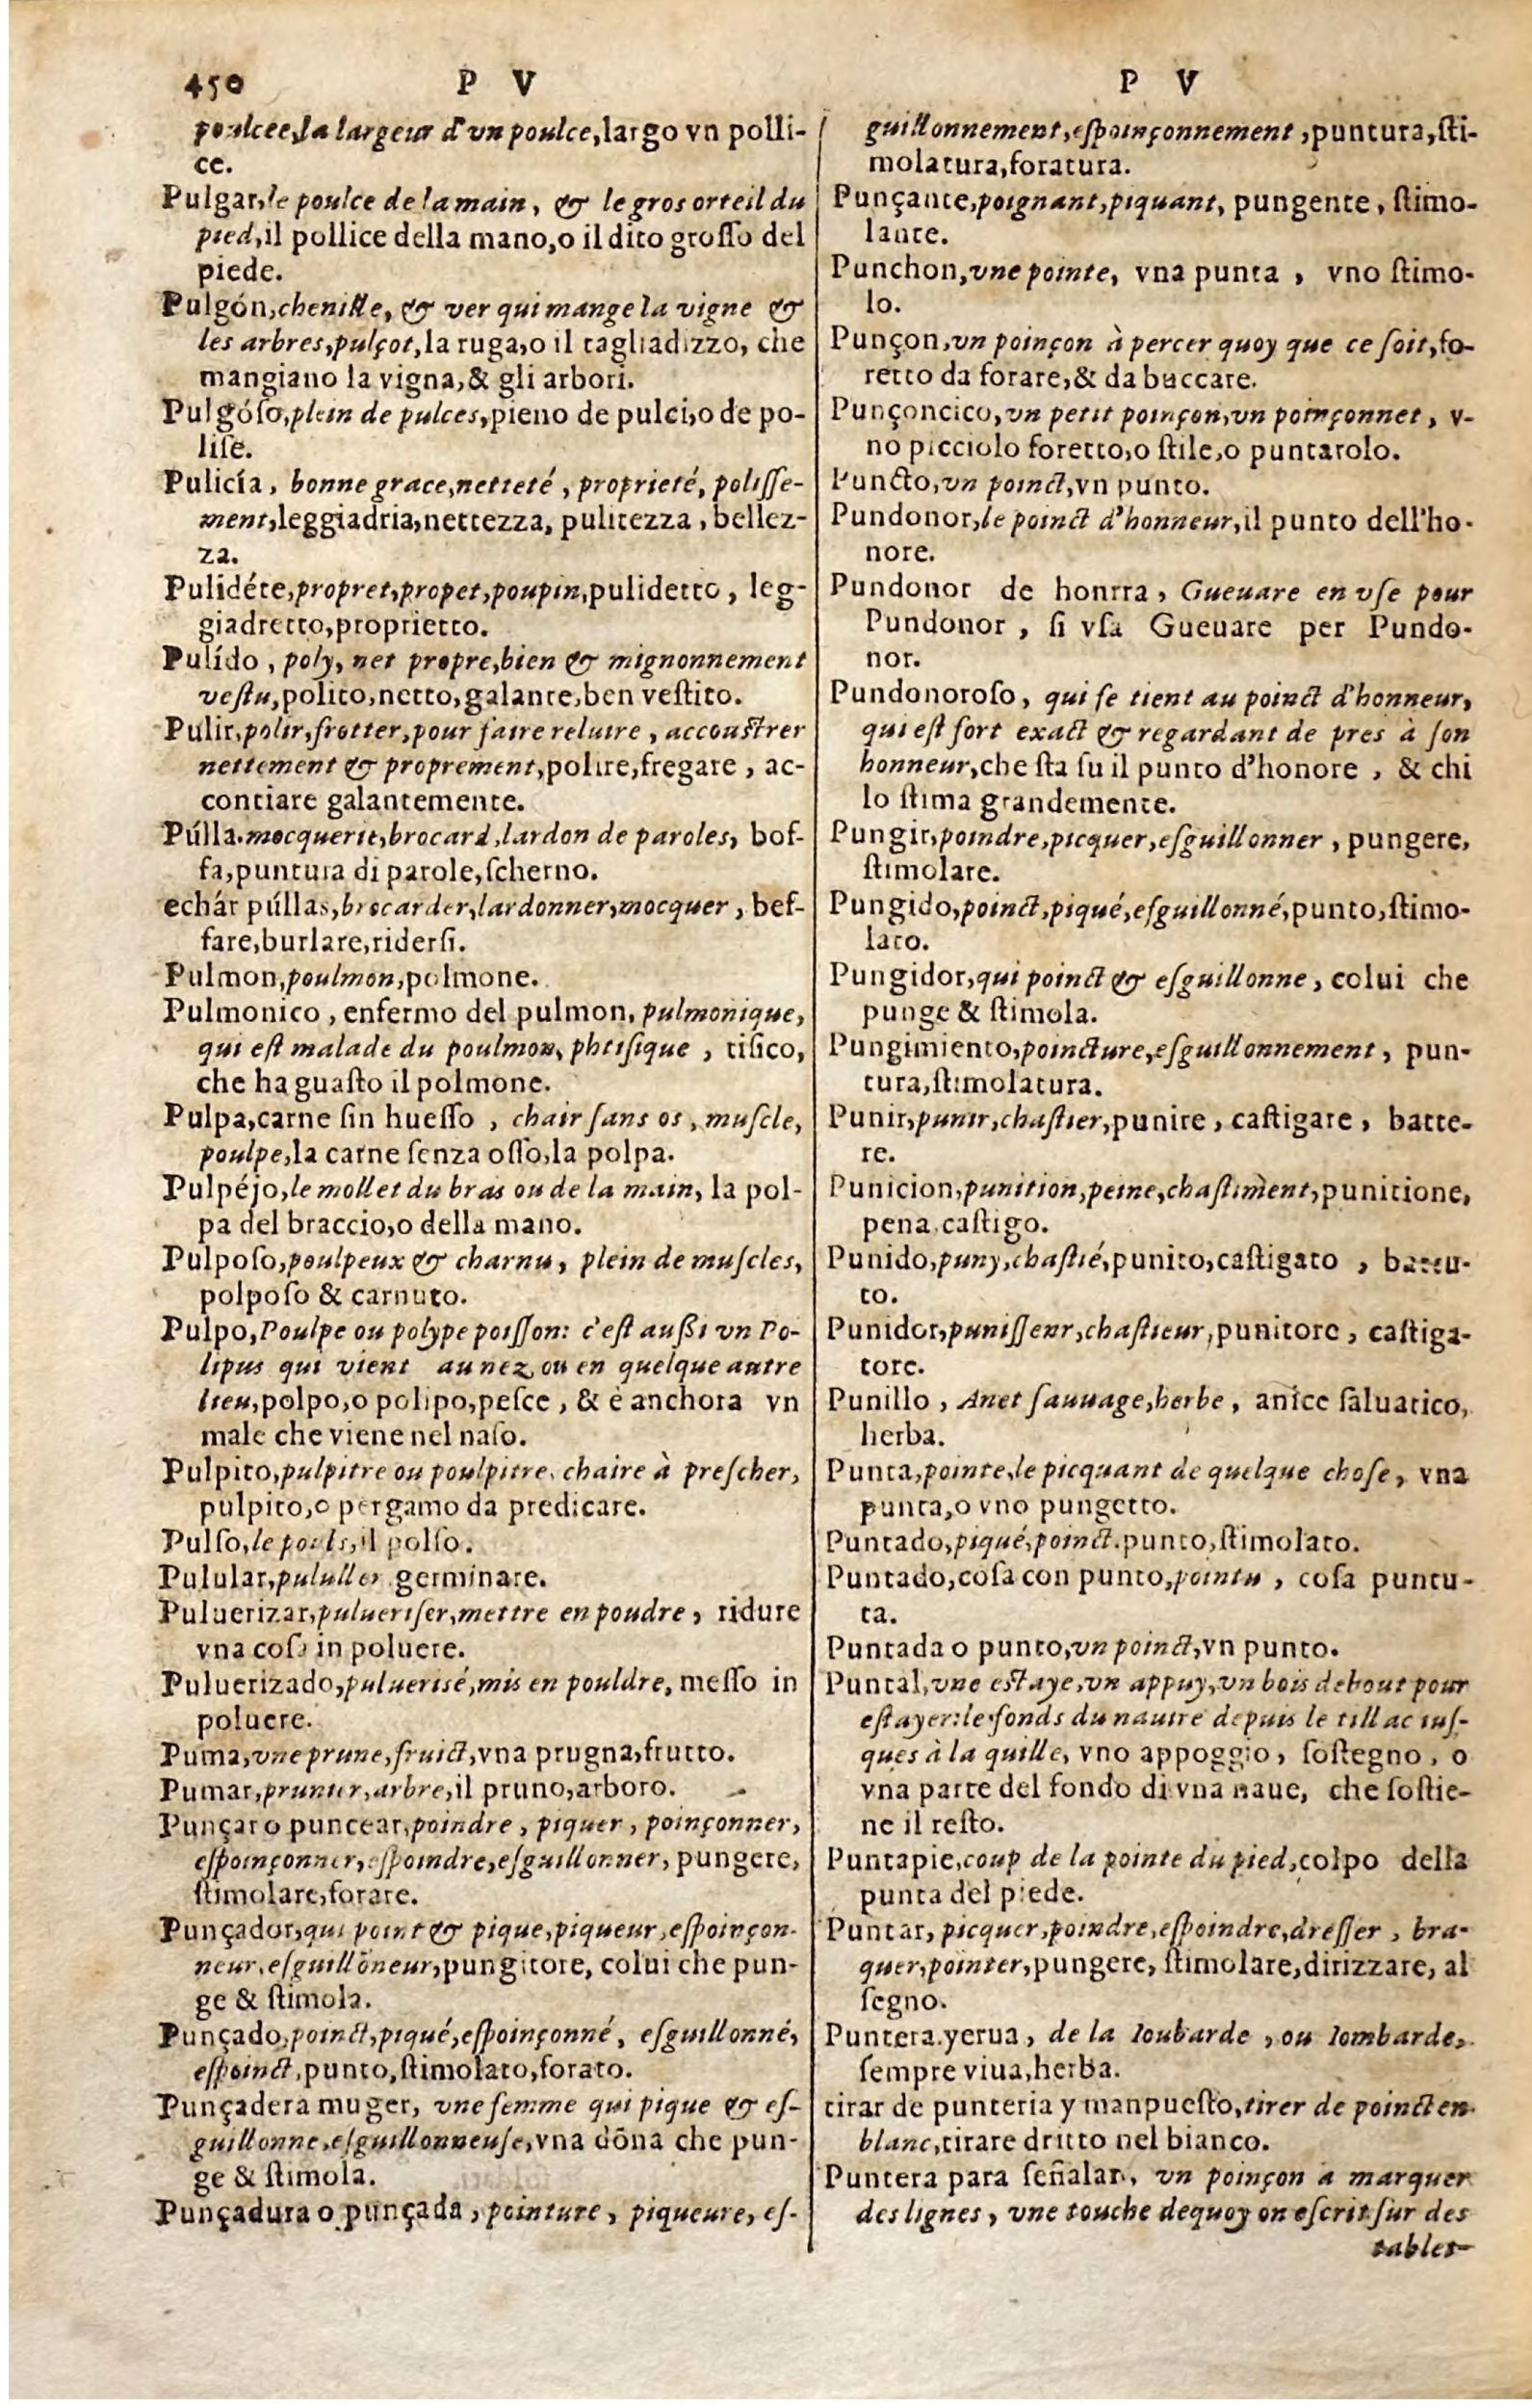 450 P V
poulcee, la largeur d'vn poulce, largo vn polli-
ce.
Pulgar, le poulce de la main, & le gros orteil du
pied, il pollice della mano, o il dito groſſo del
piede.
Pulgón, chenille, & ver qui mange la vigne &
les arbres, pulçot, la ruga, o il tagliadizzo, che
mangiano la vigna, & gli arbori.
Pulgóſo, plein de pulces, pieno de pulci, o de po-
liſe.
Pulicía, bonne grace, netteté, proprieté, poliſſe-
ment, leggiadria, nettezza, pulitezza, bellez-
za.
Pulidéte, propret, propet, poupin, pulidetto, leg-
giadretto, proprietto.
Pulído, poly, net propre, bien & mignonnement
veſtu, polito, netto, galante, ben veſtito.
Pulir, polir, frotter, pour faire reluire, accouſtrer
nettement & proprement, polire, fregare, ac-
contiare galantemente.
Púlla. mocquerie, brocard, lardon de paroles, bof-
fa, puntura di parole, ſcherno.
echár púllas, brocarder, lardonner, mocquer, bef-
fare, burlare, riderſi.
Pulmon, poulmon, polmone.
Pulmonico, enfermo del pulmon, pulmonique,
qui eſt malade du poulmon, phtiſique, tiſico,
che ha guaſto il polmone.
Pulpa, carne ſin hueſſo, chair ſans os, muſcle,
poulpe, la carne ſenza oſſo, la polpa.
Pulpéjo, le mollet du bras ou de la main, la pol-
pa del braccio, o della mano.
Pulpoſo, poulpeux & charnu, plein de muſcles,
polpoſo & carnuto.
Pulpo, Poulpe ou polype poiſſon: c'eſt auſſi vn Po-
lipus qui vient au nez ou en quelque autre
lieu, polpo, o polipo, peſce, & è anchora vn
male che viene nel naſo.
Pulpito, pulpitre ou poulpitre, chaire à preſcher,
pulpito, o pergamo da predicare.
Pulſo, le pouls, il polſo.
Pulular, pululler germinare.
Puluerizar, pulueriſer, mettre en poudre, ridure
vna coſa in poluere.
Puluerizado, pulueriſé, mis en pouldre, meſſo in
poluere.
Puma, vne prune, fruict, vna prugna, frutto.
Pumar, prunier, arbre, il pruno, arboro.
Punçar o puncear, poindre, piquer, poinçonner,
eſpoinçonner, eſpoindre, eſguillonner, pungere,
ſtimolare, forare.
Punçador, qui point & pique, piqueur, eſpoinçon-
neur, eſguillõneur, pungitore, colui che pun-
ge & ſtimola.
Punçado, poinct, piqué, eſpoinçonné, eſguillonné,
eſpoinct, punto, ſtimolato, forato.
Punçadera muger, vne femme qui pique & eſ-
guillonne, eſguillonneuſe, vna dõna che pun-
ge & ſtimola.
Punçadura o punçada, pointure, piqueure, eſ-
P V
guillonnement, eſpoinçonnement, puntura, ſti-
molatura, foratura.
Punçante, poignant, piquant, pungente, ſtimo-
lante.
Punchon, vne pointe, vna punta, vno ſtimo-
lo.
Punçon, vn poinçon à percer quoy que ce ſoit, fo-
retto da forare, & da buccare.
Punçoncico, vn petit poinçon, vn poinçonnet, v-
no picciolo foretto, o ſtile, o puntarolo.
Puncto, vn poinct, vn punto.
Pundonor, le poinct d'honneur, il punto dell'ho-
nore.
Pundonor de honrra, Gueuare en vſe pour
Pundonor, ſi vſa Gueuare per Pundo-
nor.
Pundonoroſo, qui ſe tient au poinct d'honneur,
qui eſt fort exact & regardant de pres à ſon
honneur, che ſta ſu il punto d'honore, & chi
lo ſtima grandemente.
Pungir, poindre, picquer, eſguillonner, pungere,
ſtimolare.
Pungido, poinct, piqué, eſguillonné, punto, ſtimo-
lato.
Pungidor, qui poinct & eſguillonne, colui che
punge & ſtimola.
Pungimiento, poincture, eſguillonnement, pun-
tura, ſtimolatura.
Punir, punir, chaſtier, punire, caſtigare, batte-
re.
Punicion, punition, peine, chaſtiment, punitione,
pena, caſtigo.
Punido, puny, chaſtié, punito, caſtigato, battu-
to.
Punidor, puniſſeur, chaſtieur, punitore, caſtiga-
tore.
Punillo, Anet ſauuage, herbe, anice ſaluatico,
herba.
Punta, pointe, le picquant de quelque choſe, vna
punta, o vno pungetto.
Puntado, piqué, poinct. punto, ſtimolato.
Puntado, coſa con punto, pointu, coſa puntu-
ta.
Puntada o punto, vn poinct, vn punto.
Puntal, vne eſtaye, vn appuy, vn bois debout pour
eſtayer: le fonds du nauire depuis le tillac iuſ-
ques à la quille, vno appoggio, ſoſtegno, o
vna parte del fondo di vna naue, che ſoſtie-
ne il reſto.
Puntapie, coup de la pointe du pied, colpo della
punta del piede.
Puntar, picquer, poindre, eſpoindre, dreſſer, bra-
quer, pointer, pungere, ſtimolare, dirizzare, al
ſegno.
Puntera. yerua, de la Ioubarde, ou Iombarde,
ſempre viua, herba.
tirar de punteria y manpueſto, tirer de poinct en
blanc, tirare dritto nel bianco.
Puntera para ſeñalar, vn poinçon a marquer
des lignes, vne touche dequoy on eſcrit ſur des
tablet-